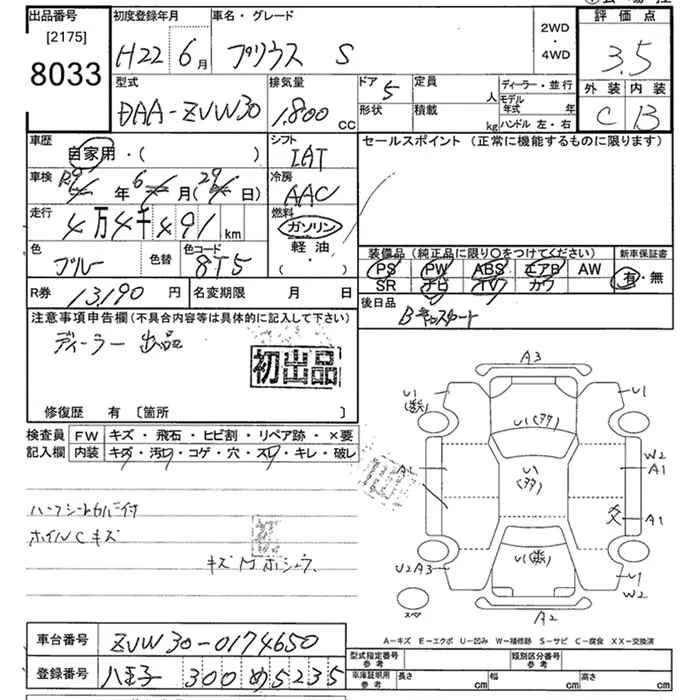 出品番号
[2175]
8033
初度登録年月
H22 6月
車名・グレード
プリウス S
2WD
・
4WD
評価点
3.5
外装 内装
C B
型式
DAA-ZVW30
排気量
1,800 CC
ドア 5
形状
定員 人
積載 kg
ディーラー・並行
モデル年式 年
ハンドル 左・右
車歴
自家用・( )
シフト
IAT
セールスポイント (正常に機能するものに限ります)
車検
年 6月( 日)
冷房
AAC
走行
4万4千491 km
燃料
ガソリン
軽油
( ・ )
色
ブルー
色替
色コード
8T5
装備品 (純正品に限り○をつけてください)
新車保証書
PS PW ABS エアB AW
SR ナビ TV カワ
有・無
R券 13,190 円
名変期限 月 日
後日品
注意事項申告欄(不具合内容等は具体的に記入して下さい)
ディーラー出品
初出品
修復歴 有 [箇所 ]
検査員記入欄
FW キズ・飛石・ヒビ割・リペア跡・×要
内装 キズ・汚れ・コゲ・穴・スレ・キレ・破レ
ハーフシートカバー付
ホイルCキズ
A3
U1
U1
U1(アタ)
U1
(アタ)
A1
W2
A1
A1
U1
U2A3
U1
W2
A2
A-キズ E-エクボ U-凹み W-補修跡 S-サビ C-腐食 XX-交換済
車台番号 ZVW30-0174650
登録番号 八王子 300 め 5235
型式指定番号
参考
類別区分番号
参考
車庫証明用
参考
長さ cm
幅 cm
高さ cm